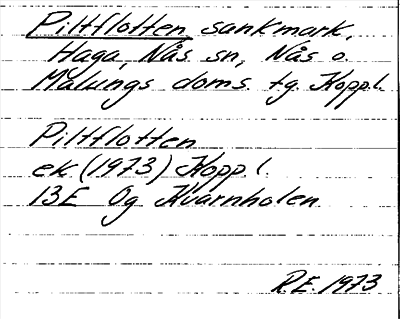 Piltflotten, sankmark,
Haga, Nås sn, Nås o.
Malungs doms. tg. Kopp.l.
Piltflotten
ek (1973) Kopp.l.
13E 0g Kvarnholen
R.E. 1973